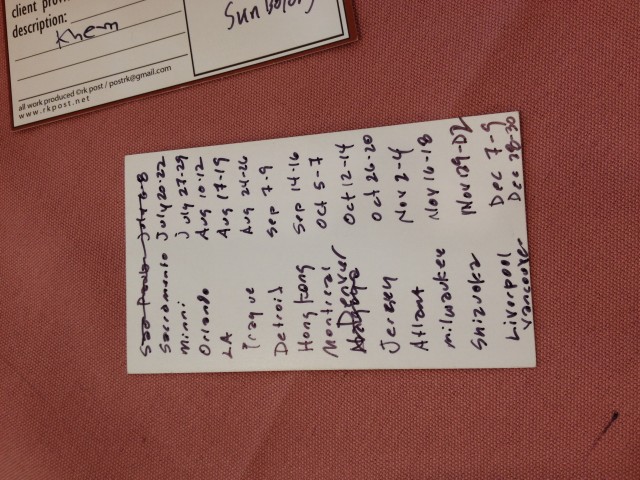 client provi
description:
Khem
all work produced ©rk post / postrk@gmail.com
www.rkpost.net
Sao Paulo July 6-8
Sacramento July 20-22
Minni July 27-29
Orlando Aug 10-12
LA Aug 17-19
Prague Aug 24-26
Detroit Sep 7-9
Hong Kong Sep 14-16
Montreal Oct 5-7
Denver Oct 12-14
Jersey Oct 26-20
Atlant Nov 2-4
Milwaukee Nov 16-18
Shizuoka Nov 29-D2
Liverpool Dec 7-9
Vancouver Dec 28-30